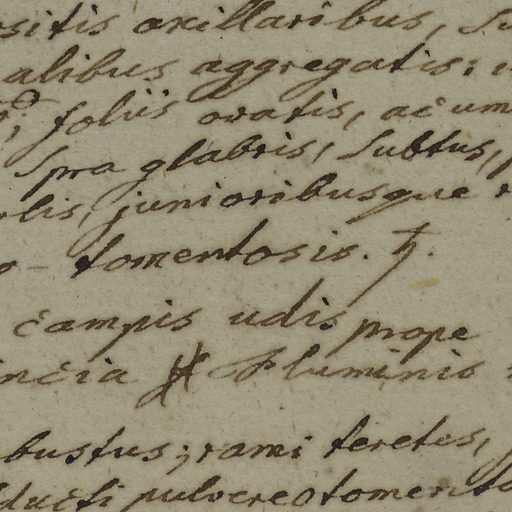 sitis axillaribus, su
alibus aggregatis:
foliis ovatis, acum
spra glabris, subtus,
lis, junioribusque
o-tomentosis. ♄.
campis udis prope
incia Fluminis
bustus; rami teretes,
ducti pulvereotomento